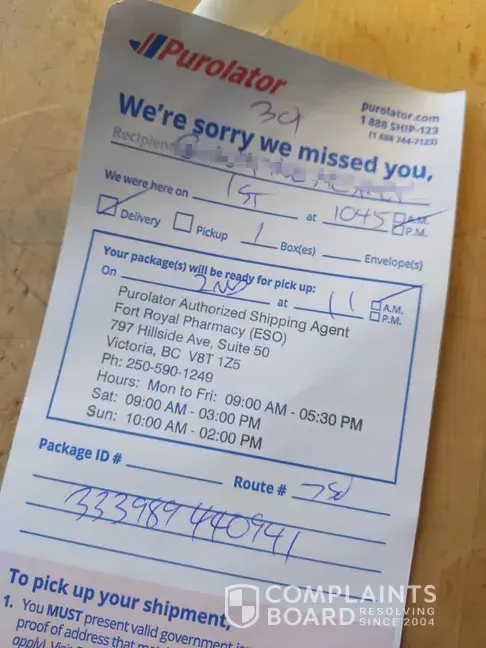 Purolator
purolator.com
1 888 SHIP-123
(1 888 744-7123)
We're sorry we missed you,
Recipient
We were here on 1ST at 1045 A.M.
P.M.
Delivery Pickup 1 Box(es) Envelope(s)
Your package(s) will be ready for pick up:
On 2ND at 11 A.M.
P.M.
Purolator Authorized Shipping Agent
Fort Royal Pharmacy (ESO)
797 Hillside Ave, Suite 50
Victoria, BC V8T 1Z5
Ph: 250-590-1249
Hours: Mon to Fri: 09:00 AM - 05:30 PM
Sat: 09:00 AM - 03:00 PM
Sun: 10:00 AM - 02:00 PM
Package ID #
Route #
333989440941
To pick up your shipment,
1. You MUST present valid government
proof of address that
COMPLAINTS
BOARD RESOLVING
SINCE 2004